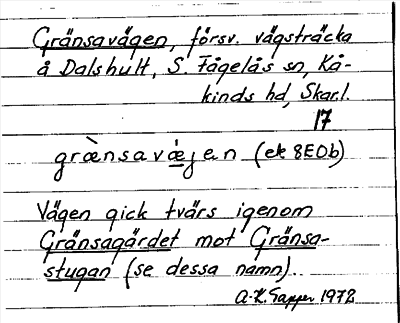 Gränsavägen, försv. vägsträcka
å Dalshult, S. Fågelås sn, Kå-
kinds hd, Skar.l.
17
græ̀nsavæ̀jen (ek 8E0b)
Vägen gick tvärs igenom
Gränsagärdet mot Gränsa-
stugan (se dessa namn).
A-K. Tapper 1972